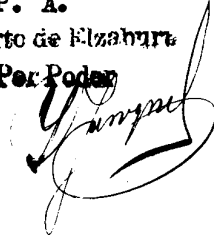 P. A.
rto de Elzaburu
Por Poder